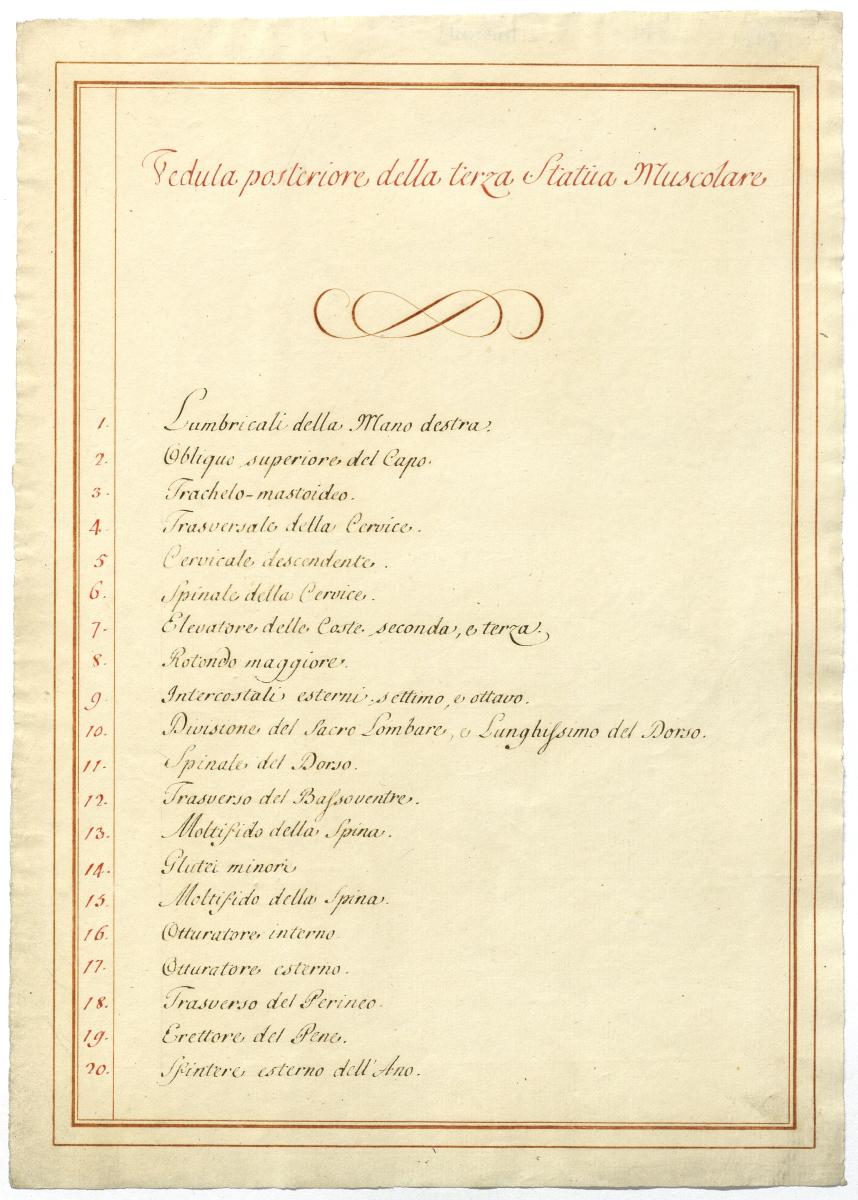 Veduta posteriore della terza Statua Muscolare
1. Lumbricali della Mano destra.
2. Obliquo superiore del Capo.
3. Trachelo-mastoideo.
4. Trasversale della Cervice.
5 Cervicale descendente.
6. Spinale della Cervice.
7. Elevatore delle Coste seconda, e terza.
8. Rotondo maggiore.
9. Intercostali esterni, settimo, e ottavo.
10. Divisione del Sacro Lombare, e Lunghissimo del Dorso.
11. Spinale del Dorso.
12. Trasverso del Bassoventre.
13. Moltifido della Spina.
14. Glutei minori
15. Moltifido della Spina.
16. Otturatore interno
17. Otturatore esterno.
18. Trasverso del Perineo.
19. Erettore del Pene.
20. Sfintere esterno dell'Ano.